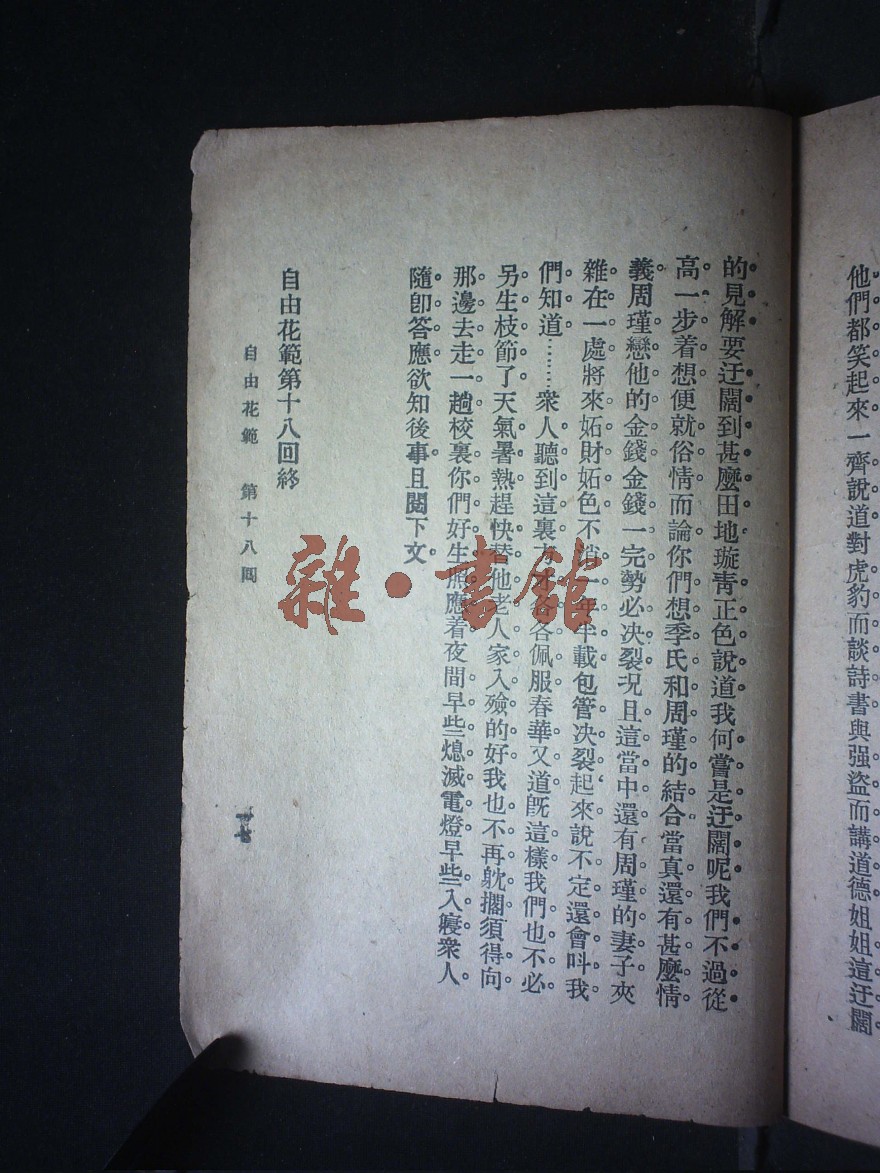 他們都笑起來一齊說道對虎豹而談詩書與强盜而講道德姐姐這迂闊
的見解要迂闊到甚麼田地璇靑正色說道我何嘗是迂闊呢我們不過從
高一步着想便就俗情而論你們想季氏和周瑾的結合當真還有甚麼情
義周瑾戀他的金錢金錢一完勢必决裂况且這當中還有周瑾的妻子夾
雜在一處將來妬財妬色不消一年半載包管决裂起來說不定還會叫我
們知道………衆人聽到這裏方才各各佩服春華又道旣這樣我們也不必
另生枝節了天氣暑熱趕快替他老人家入殮的好我也不再躭擱須得向
那邊去走一趟校裏你們好生照應着夜間早些熄滅電燈早些入寢衆人
隨卽答應欲知後事且閱下文
自由花範第十八回終
自由花範 第十八囘
雜·書館